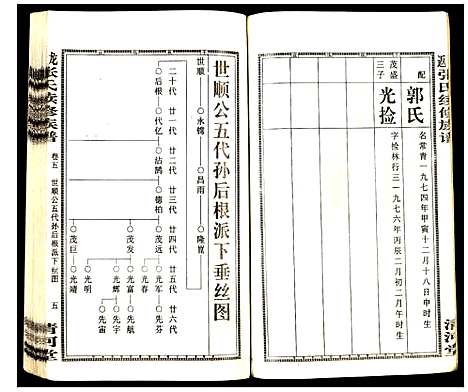 张氏续修族谱
配
郭氏
名常青一九七四年甲寅十二月十八日申时生
茂盛三子
光捡
字捡林行三一九七六年丙辰二月初二月午时生
清河堂
世顺公五代孙后根派下垂丝图
世顺
永锦
昌雨
隆崑
二十代
廿一代
廿二代
廿三代
廿四代
廿五代
廿六代
后根
代亿
沾鹄
德柏
茂远
光军
先芬
光春
茂发
光富
先航
光辉
先宇
先宙
光明
茂巨
光靖
张氏续修族谱
卷五
世顺公五代孙后根派下垂丝图
五
清河堂